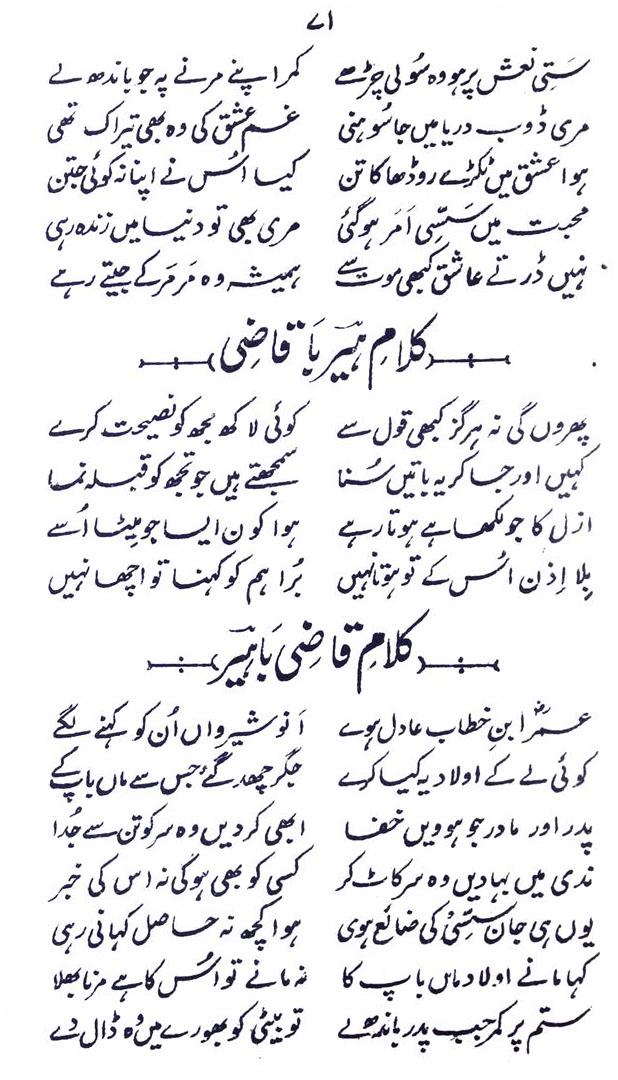 ۷۱
ستی نعش پر ہو وہ سولی چڑھے کمر اپنے مرنے پہ جو باندھ لے
مری ڈوب دریا میں جا سوہنی غمِ عشق کی وہ بھی تیراک تھی
ہوا عشق میں ٹکڑے روڈھا کا تن کیا اُس نے اپنا نہ کوئی جتن
محبت میں سسّی اَمَر ہو گئی مری بھی تو دنیا میں زندہ رہی
نہیں ڈرتے عاشق کبھی موت سے ہمیشہ وہ مَر مَر کے جیتے رہے
کلامِ ہیر با قاضی
پھروں گی نہ ہرگز کبھی قول سے کوئی لاکھ مجھ کو نصیحت کرے
کہیں اور جا کر یہ باتیں سُنا سمجھتے ہیں جو تجھ کو قبلہ نما
ازل کا جو لکھا ہے ہوتا رہے ہوا کون ایسا جو میٹا اُسے
بِلا اِذن اُس کے تو ہوتا نہیں بُرا ہم کو کہنا تو اچھا نہیں
کلامِ قاضی با ہیر
عمرؓ ابنِ خطاب عادل ہوے اَنوشیرواں اُن کو کہنے لگے
کوئی لے کے اولاد یہ کیا کرے جگر چھد گئے جس سے ماں باپ کے
پدر اور مادر جو ہوویں خفا ابھی کر دیں وہ سر کو تن سے جُدا
ندی میں بہا دیں وہ سر کاٹ کر کسی کو بھی ہو گی نہ اس کی خبر
یوں ہی جان سسّیؔ کی ضائع ہوی ہوا کچھ نہ حاصل کہانی رہی
کہا مانے اولاد ماں باپ کا نہ مانے تو اُس کا ہے مرنا بھلا
ستم پر کمر جب پدر باندھ لے تو بیٹی کو بھورے میں وہ ڈال دے